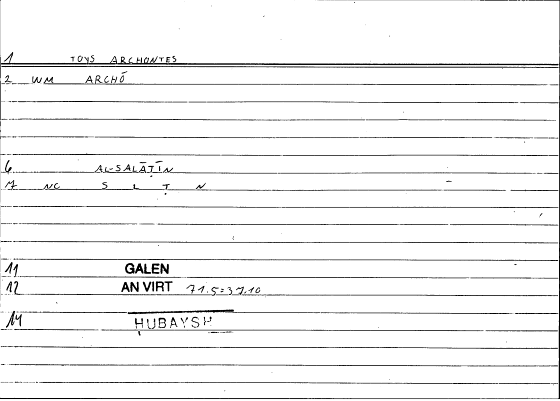 1 TOYS ARCHONTES
2 WM ARCHÓ
6 AL-SALĀṬĪN
17 NC S L Ṭ N
11 GALEN
12 AN VIRT 71.5=37.10
14 HUBAYSH